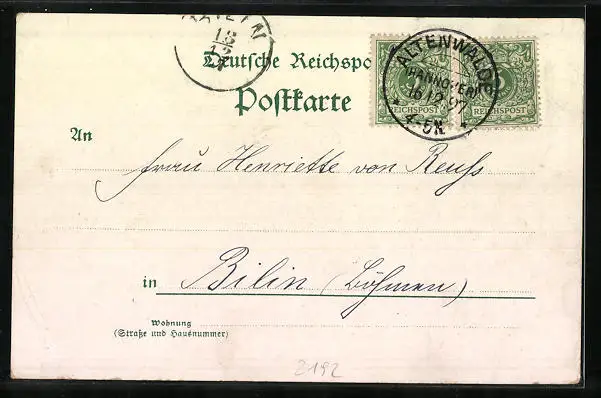 18
12
Deutsche Reichspo
Postkarte
ALTENWALDE
(HANNOVER)
16 12 97
4-5N.
REICHSPOST REICHSPOST
An
Frau Henriette von Reuss
in Bilin (Böhmen)
Wohnung
(Straße und Hausnummer)
2192